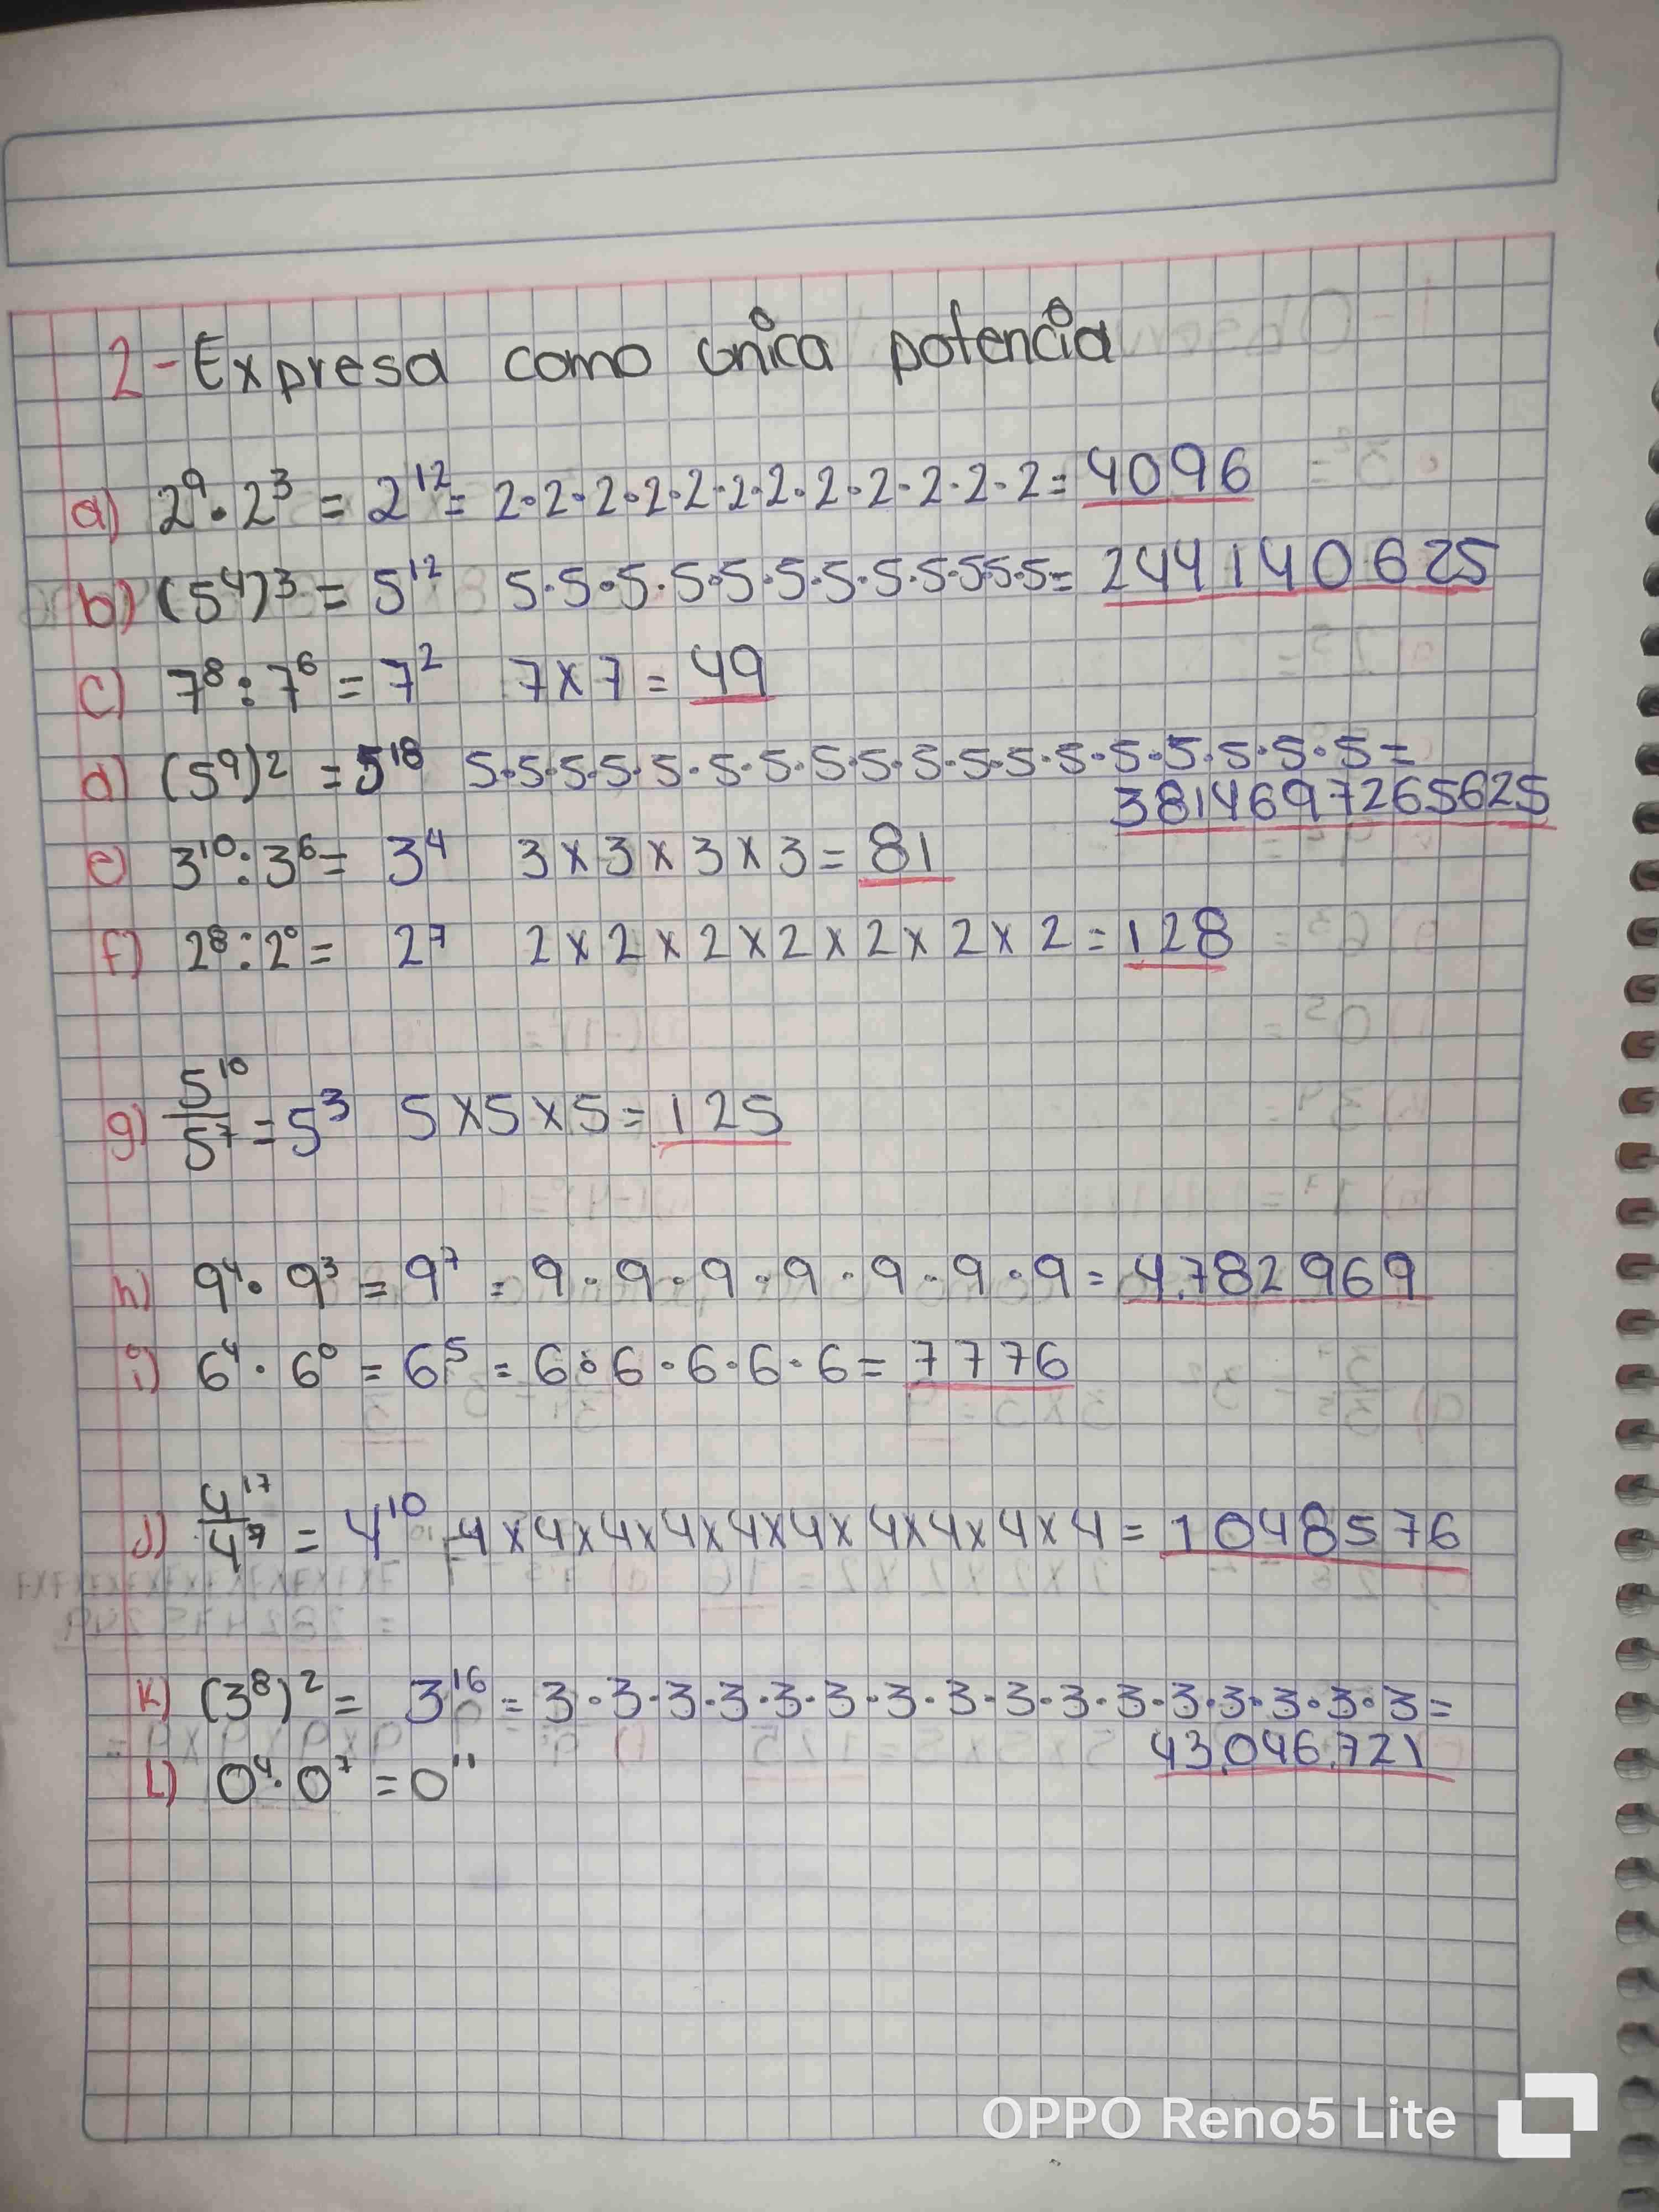 2- Expresa como única potencia
a) 2⁹ · 2³ = 2¹² = 2·2·2·2·2·2·2·2·2·2·2·2 = 4096
b) (5⁴)³ = 5¹² 5·5·5·5·5·5·5·5·5·5·5·5 = 244140625
c) 7⁸ : 7⁶ = 7² 7 x 7 = 49
d) (5⁹)² = 5¹⁸ 5·5·5·5·5·5·5·5·5·5·5·5·5·5·5·5·5·5 =
3814697265625
e) 3¹⁰ : 3⁶ = 3⁴ 3 x 3 x 3 x 3 = 81
f) 2⁸ : 2⁰ = 2⁷ 2 x 2 x 2 x 2 x 2 x 2 x 2 = 128
g) 5¹⁰/5⁷ = 5³ 5 x 5 x 5 = 125
h) 9⁴ · 9³ = 9⁷ = 9 · 9 · 9 · 9 · 9 · 9 · 9 = 4.782969
i) 6⁴ · 6⁰ = 6⁵ = 6·6·6·6·6 = 7776
J) 4¹⁷/4⁷ = 4¹⁰ 4 x 4 x 4 x 4 x 4 x 4 x 4 x 4 x 4 x 4 = 1048576
K) (3⁸)² = 3¹⁶ = 3·3·3·3·3·3·3·3·3·3·3·3·3·3·3·3 =
43.046.721
L) 0⁴ · 0⁷ = 0¹¹
OPPO Reno5 Lite